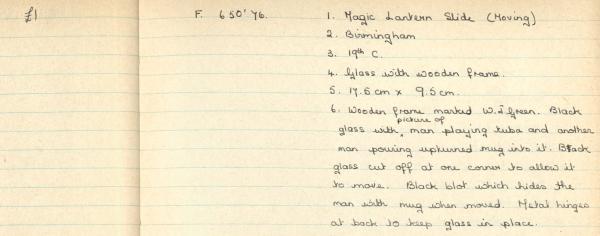 £1 F. 650'76. 1. Magic Lantern Slide (Moving)
2. Birmingham
3. 19th C.
4. Glass with wooden frame.
5. 17.5cm x 9.5cm.
6. Wooden frame marked W.J Green. Black
picture of
glass with, man playing tuba and another
man pouring upturned mug into it. Black
glass cut off at one corner to allow it
to move. Black blot which hides the
man with mug when moved. Metal hinges
at back to keep glass in place.